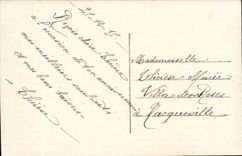 Reçois chère Thérèse
à l'occasion de ton anniversaire
mes meilleurs souhaits
et mes bons baisers
Thérèse
Mademoiselle
Thérèse Marie
Villa des Roses
à Jacqueville